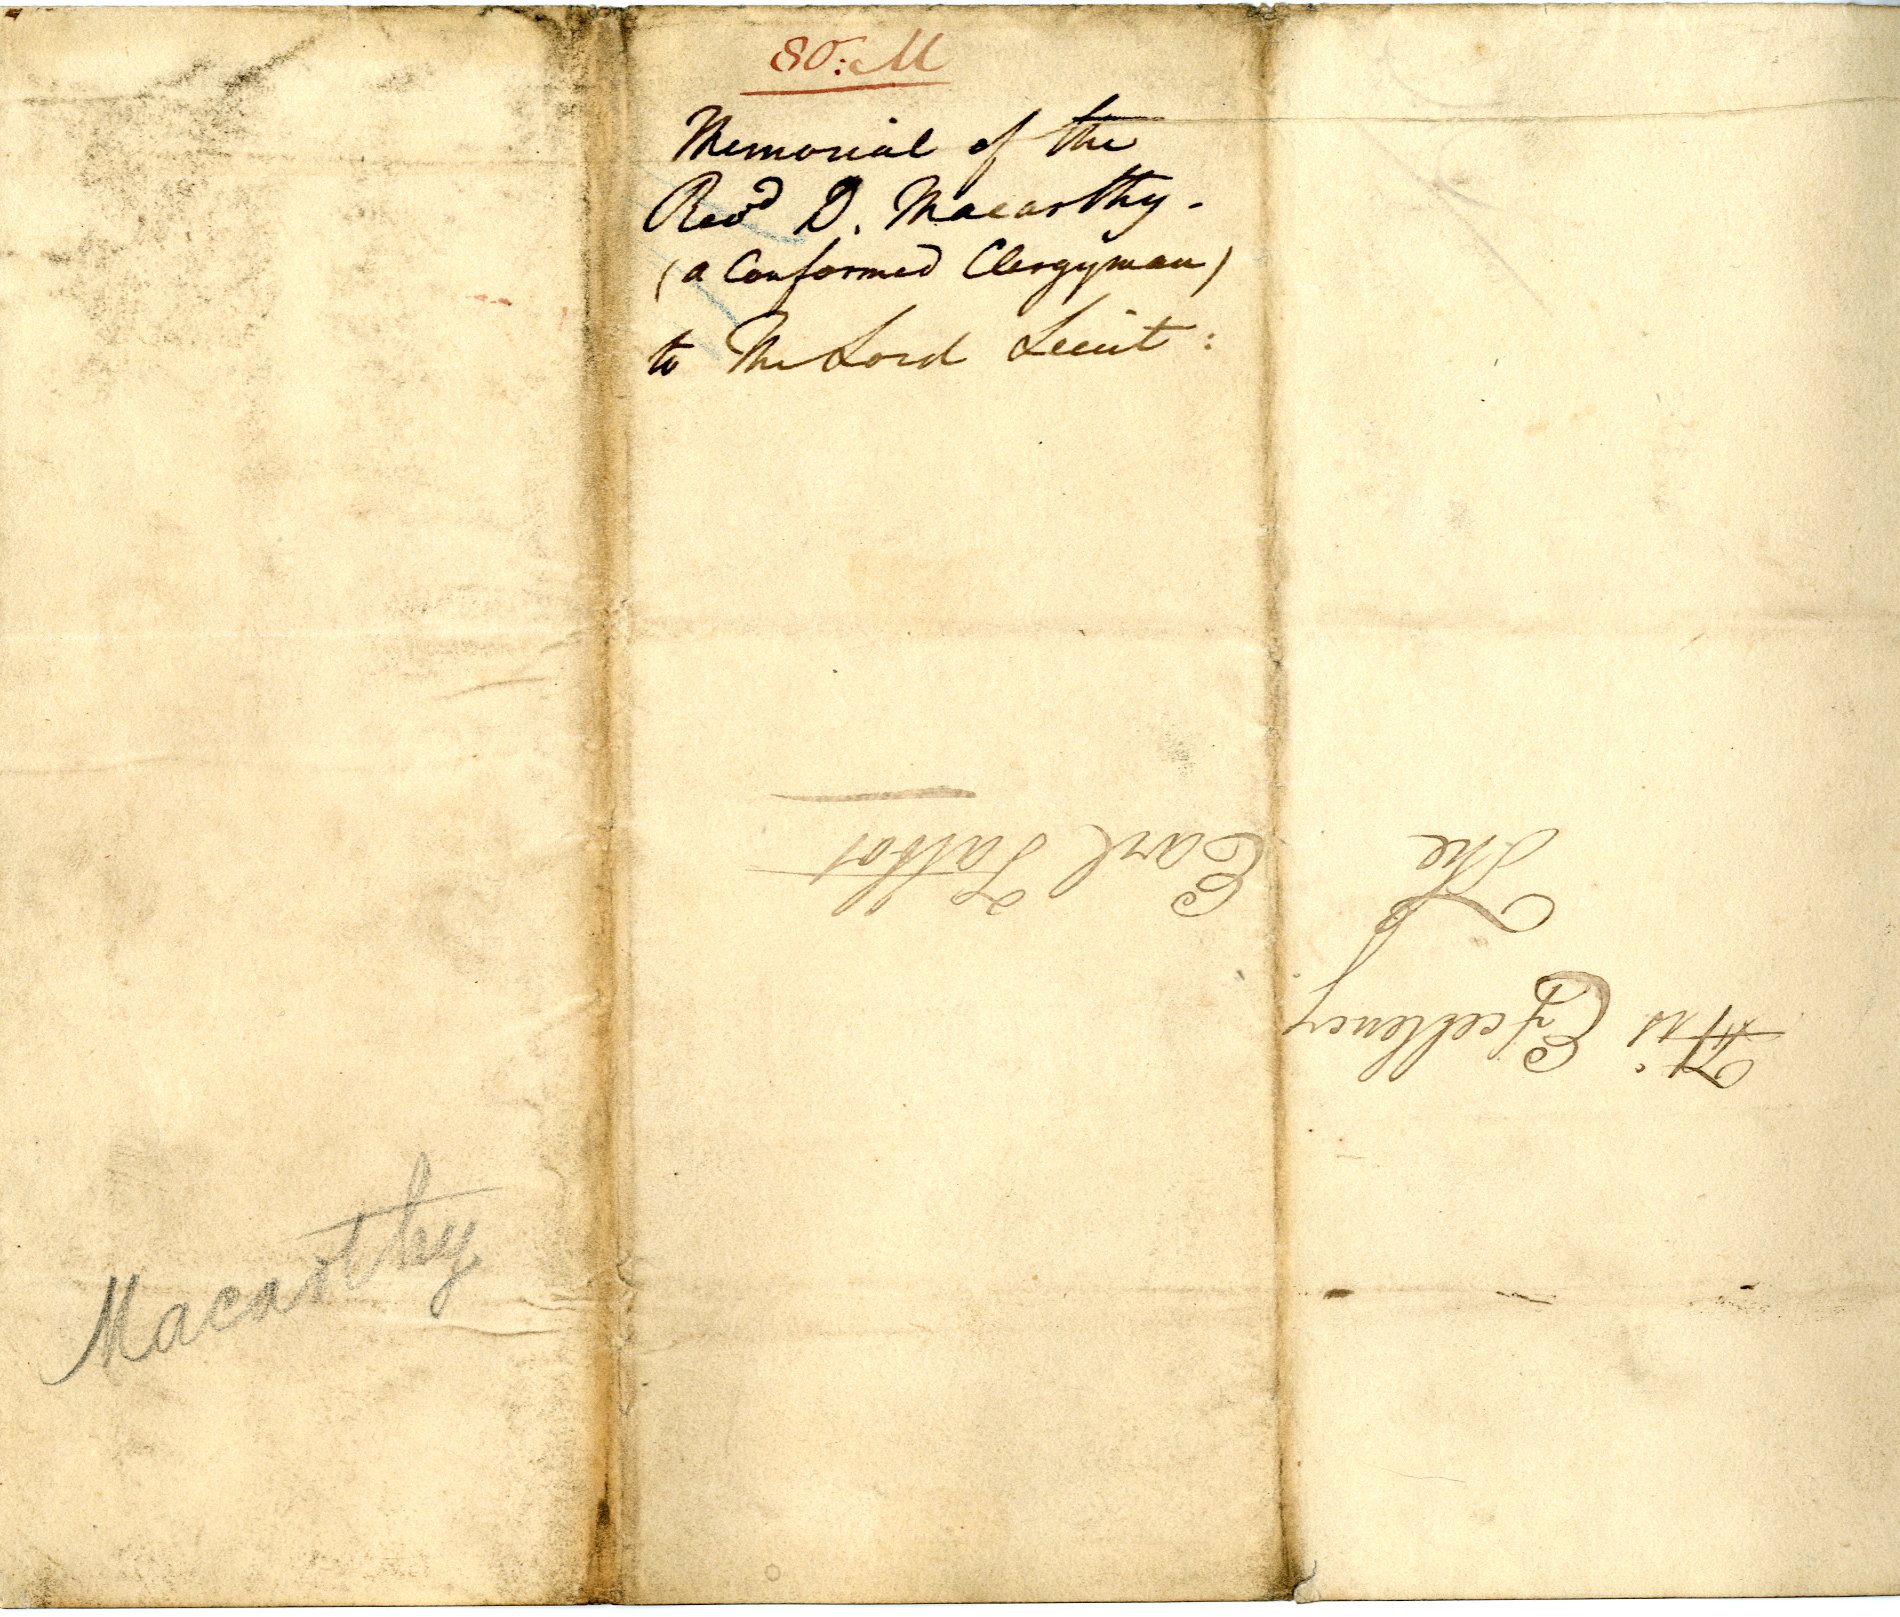 80:M
Memorial of the
Revd D. Macarthy -
(a Conformed Clergyman)
to The Lord Lieut:
His Excellency
The
Earl Talbot
Macarthy